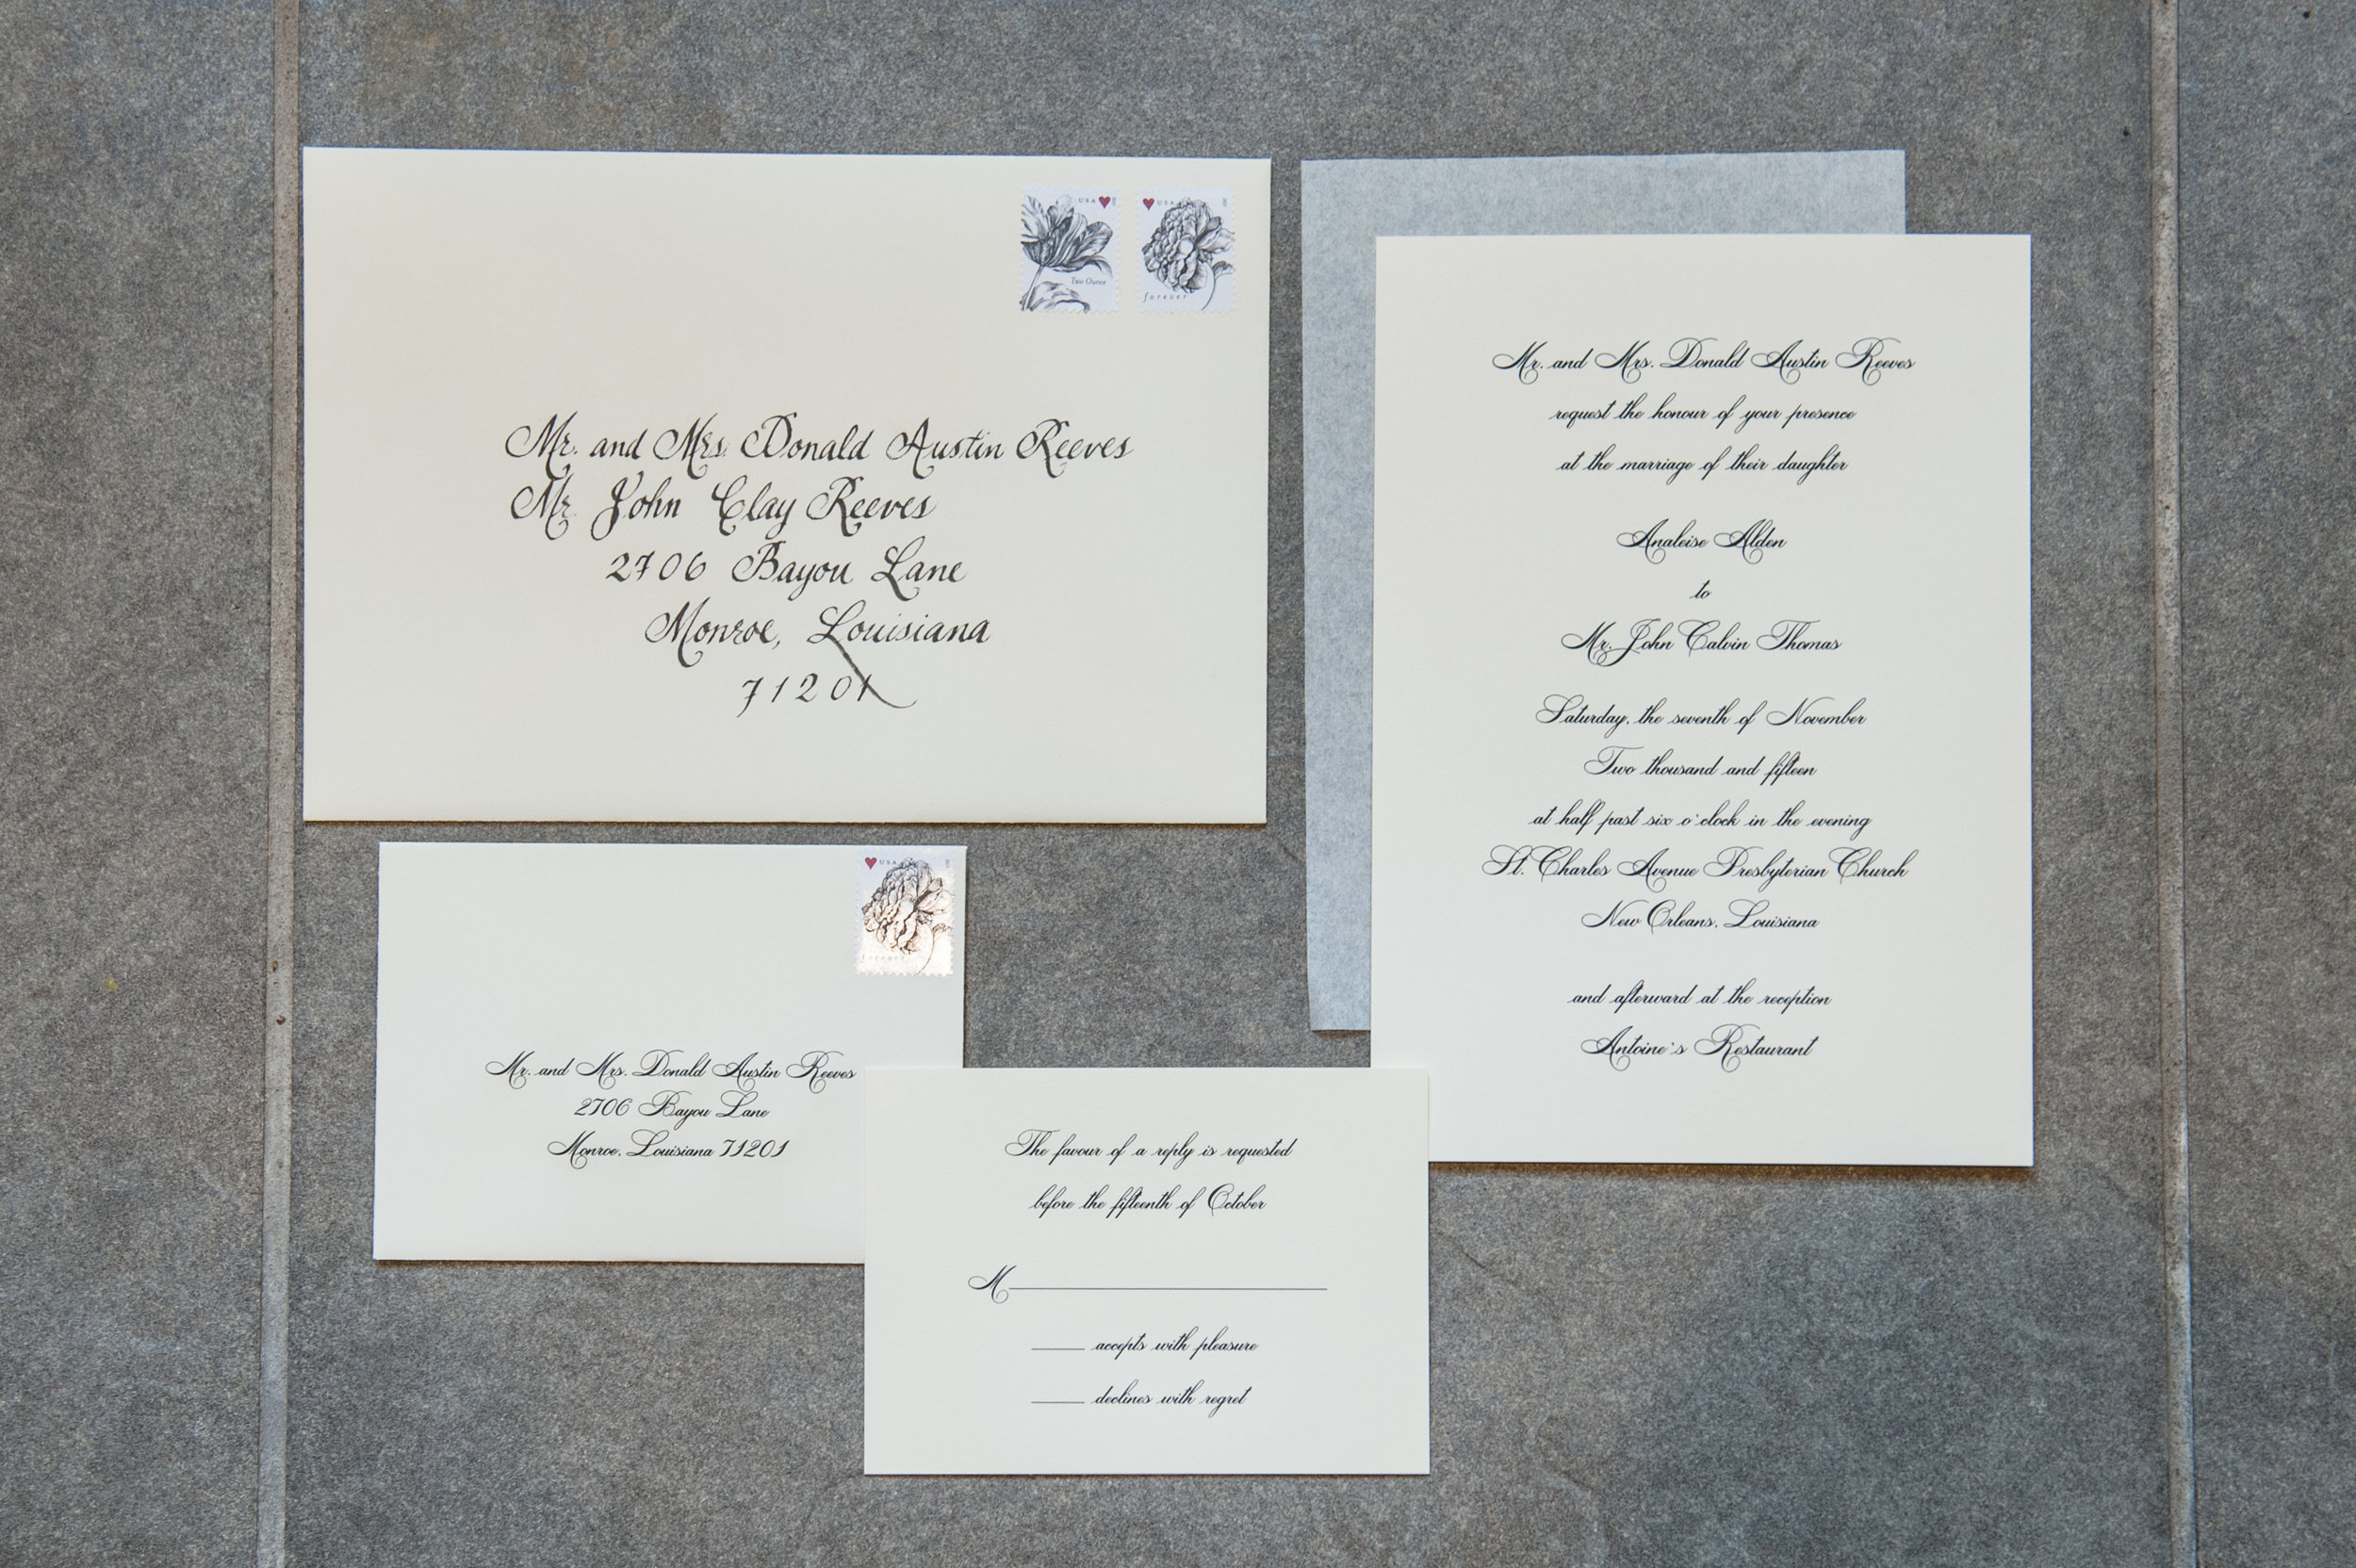 USA
Two Ounce
USA
forever
Mr. and Mrs. Donald Austin Reeves
Mr. John Clay Reeves
2706 Bayou Lane
Monroe, Louisiana
71201
Mr. and Mrs. Donald Austin Reeves
request the honour of your presence
at the marriage of their daughter
Analeise Alden
to
Mr. John Calvin Thomas
Saturday, the seventh of November
Two thousand and fifteen
at half past six o'clock in the evening
St. Charles Avenue Presbyterian Church
New Orleans, Louisiana
and afterward at the reception
Antoine's Restaurant
USA
forever
Mr. and Mrs. Donald Austin Reeves
2706 Bayou Lane
Monroe, Louisiana 71201
The favour of a reply is requested
before the fifteenth of October
M
accepts with pleasure
declines with regret